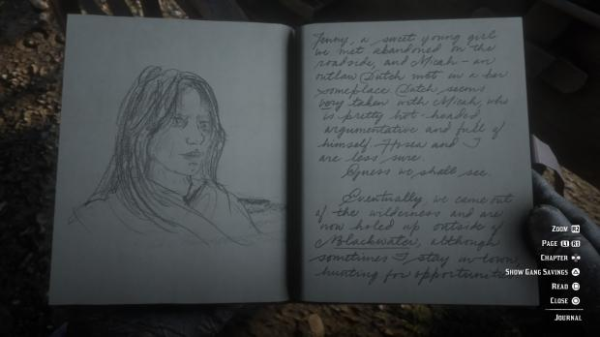 Jenny, a sweet young girl
we met abandoned on the
roadside, and Micah - an
outlaw Dutch met in a bar
someplace. Dutch seems
very taken with Micah, who
is pretty hot-headed,
argumentative and full of
himself. Hosea and I
are less sure.
Guess we shall see.
Eventually, we came out
of the wilderness and are
now holed up outside of
Blackwater, although
sometimes I stay in town
hunting for opportunities
ZOOM R2
PAGE L1 R1
CHAPTER
SHOW GANG SAVINGS
READ
CLOSE
JOURNAL